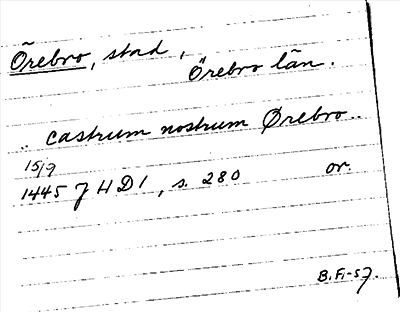 Örebro, stad,
Örebro län.
.. castrum nostrum Ørebro..
15/9
1445 J H D 1, s. 280 or.
B.Fi-57.